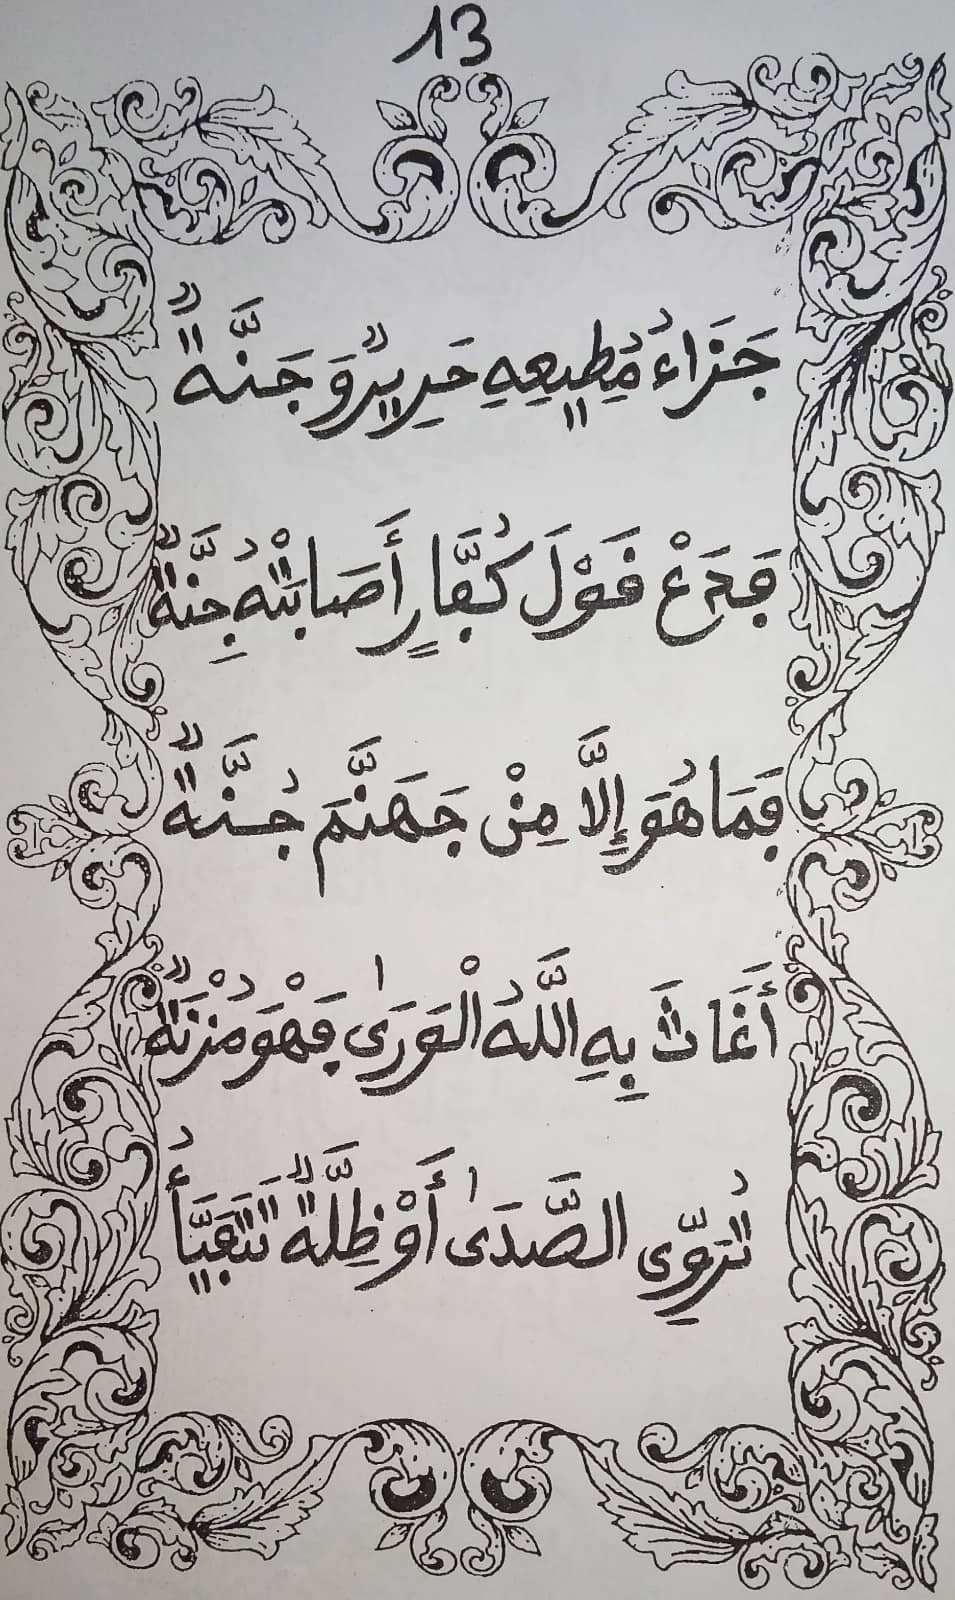 13
جَزَاءُ مُطِيعِهِ حَرِيرٌ وَجَنَّةٌ
فَدَعْ قَوْلَ كُفَّارٍ أَصَابَتْهُ جِنَّةٌ
فَمَا هُوَ إِلَّا مِنْ جَهَنَّمَ جُنَّةٌ
أَغَاثَ بِهِ اللَّهُ الْوَرَىٰ فَهْوَ مُزْنَةٌ
تُرَوِّي الصَّدَىٰ أَوْ ظِلَّةٌ تَتَفَيَّأُ